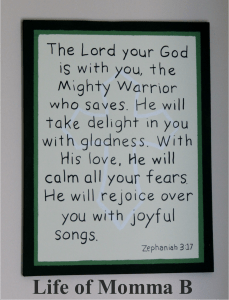 The Lord your God
is with you, the
Mighty Warrior
who saves. He will
take delight in you
with gladness. With
His love, He will
calm all your fears.
He will rejoice over
you with joyful
songs.
Zephaniah 3:17
Life of Momma B